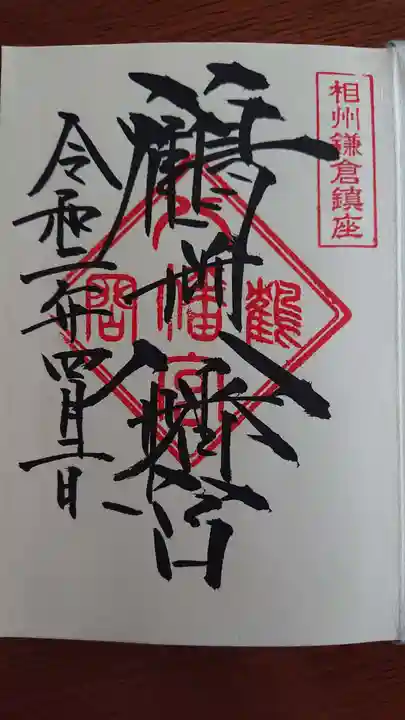 相州鎌倉鎮座
鶴岡八幡宮
鶴
八幡宮
岡
令和二年四月日